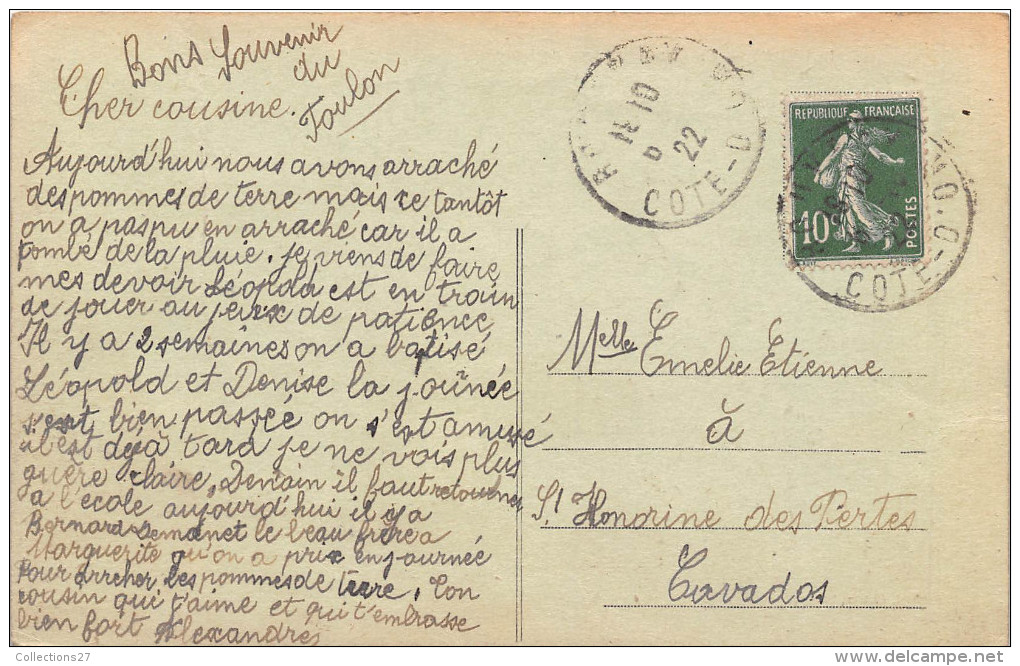 Bons Souvenir
du
Toulon
Cher cousine.
Aujourd'hui nous avons arraché
des pommes de terre mais ce tantôt
on a pas pu en arraché car il a
tombé de la pluie. je viens de faire
mes devoir Léopold est en train
de jouer au jeux de patience
Il y a 2 semaines on a batisé
Léopold et Denise la journée
s'est bien passée on s'est amusé
il est déjà tard je ne vois plus
guère claire. Demain il faut retourner
a l'ecole aujourd'hui il y a
Bernard le beau frère a
Marguerite qu'on a prix en journée
Pour arrcher les pommes de terre. Ton
cousin qui t'aime et qui t'embrasse
bien fort Alexandre
COTE-D
22
REPUBLIQUE FRANÇAISE
10c
POSTES
COTE-D
Melle Emelie Etienne
à
St Honorine des Pertes
Cavados
Collections27
http://www.delcampe.net